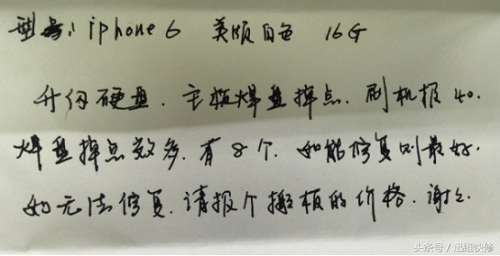 型号: iphone 6 美版 白色 16G
升级硬盘. 主板焊盘掉点. 刷机报40.
焊盘掉点数多. 有8个. 如能修复则最好.
如无法修复. 请报个搬板的价格. 谢谢.
头条号 / 迅维快修